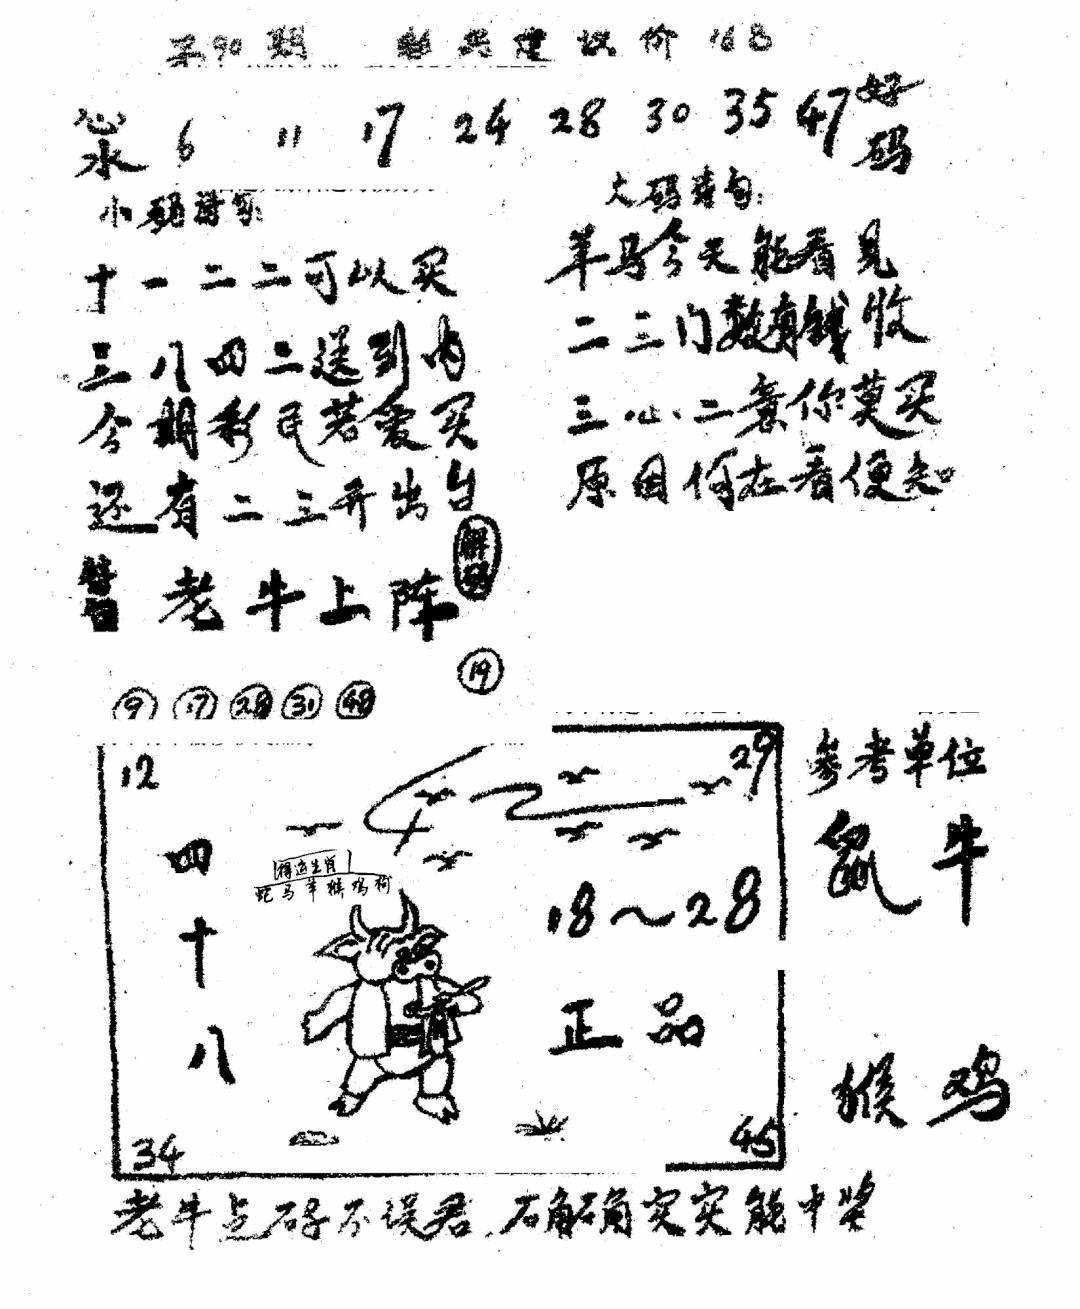 第90期 建议价168
心水 6 11 17 24 28 30 35 47 好码
小码诗句:
十一二二可以买
三八四二送到内
今期彩民若爱买
还有二三开出台
大码诗句:
羊马今天能看见
二三门数有钱收
三心二意你莫买
原因何在看便知
老牛上阵
解码
9 17 28 31 48 19
12 29
四十八
生肖
蛇马羊猴鸡狗
18~28
正品
34 45
参考单位
鼠牛
猴鸡
老牛点码不误君,确确实实能中奖